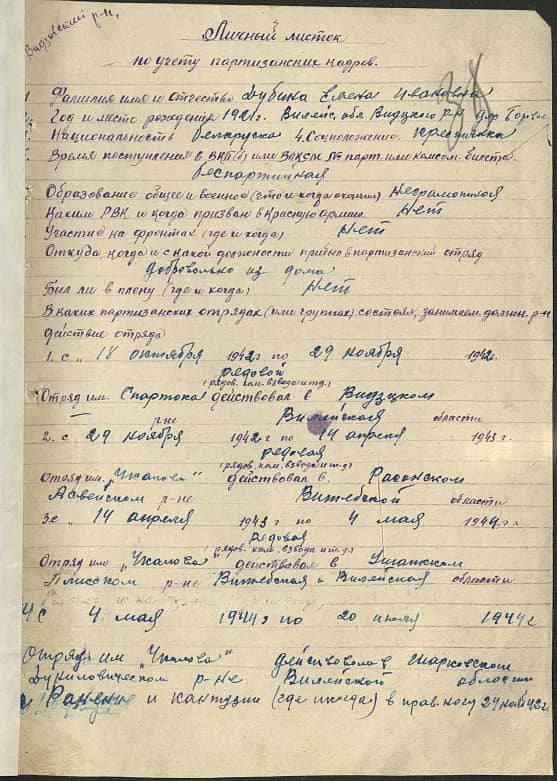 Видзский р-н,
Личный листок
по учету партизанских кадров.
1. Фамилия имя и отчество Дубина Елена Ивановна
2. Год и место рождения 1921г. Вилейс. обл Видзского р-н дер
3. Национальность беларуска 4. Соцположение. крестьянка
Время поступления в ВКП(б) или ВЛКСМ № парт. или комсом. билета.
беспартийная
Образование общее и военное (что и когда окончил) Неграмотная
Каким РВК и когда призван в Красную армию Нет
Участие на фронтах (где и когда) Нет
Откуда, когда и с какой должности прибыл в партизанский отряд
добровольно из дома
Был ли в плену (где и когда) Нет
В каких партизанских отрядах (или группах) состоял, занимаем. должн. р-н
действие отряда
1. с " 18 октября 1942г по 29 ноября 1942г.
рядовой
(рядов. ком. взвода и т.д.)
Отряд им. Спартока действовал в Видзском
р-не Вилейской области
2. с 29 ноября 1942г по 14 апреля 1943г.
рядовая
(рядов. ком. взвода и т.д)
Отряд им. "Чкалова" действовал в. Расонском
Асвейском р-не Витебской области
3. с " 14 апреля 1943г по 4 мая 1944г.
рядовая
(рядов. ком. взвода и т.д.)
Отряд им "Чкалова" действовал в Ушачском
Плисском р-не Витебская и Вилейская области
4 с 4 мая 1944г по 20 июля 1944г
Отряд им "Чкалова" действовал в Шарковском
Дуниловическом р-не Вилейской области
Ранение и кантузии (где и когда) в прав. ногу 24 ноя 42г.